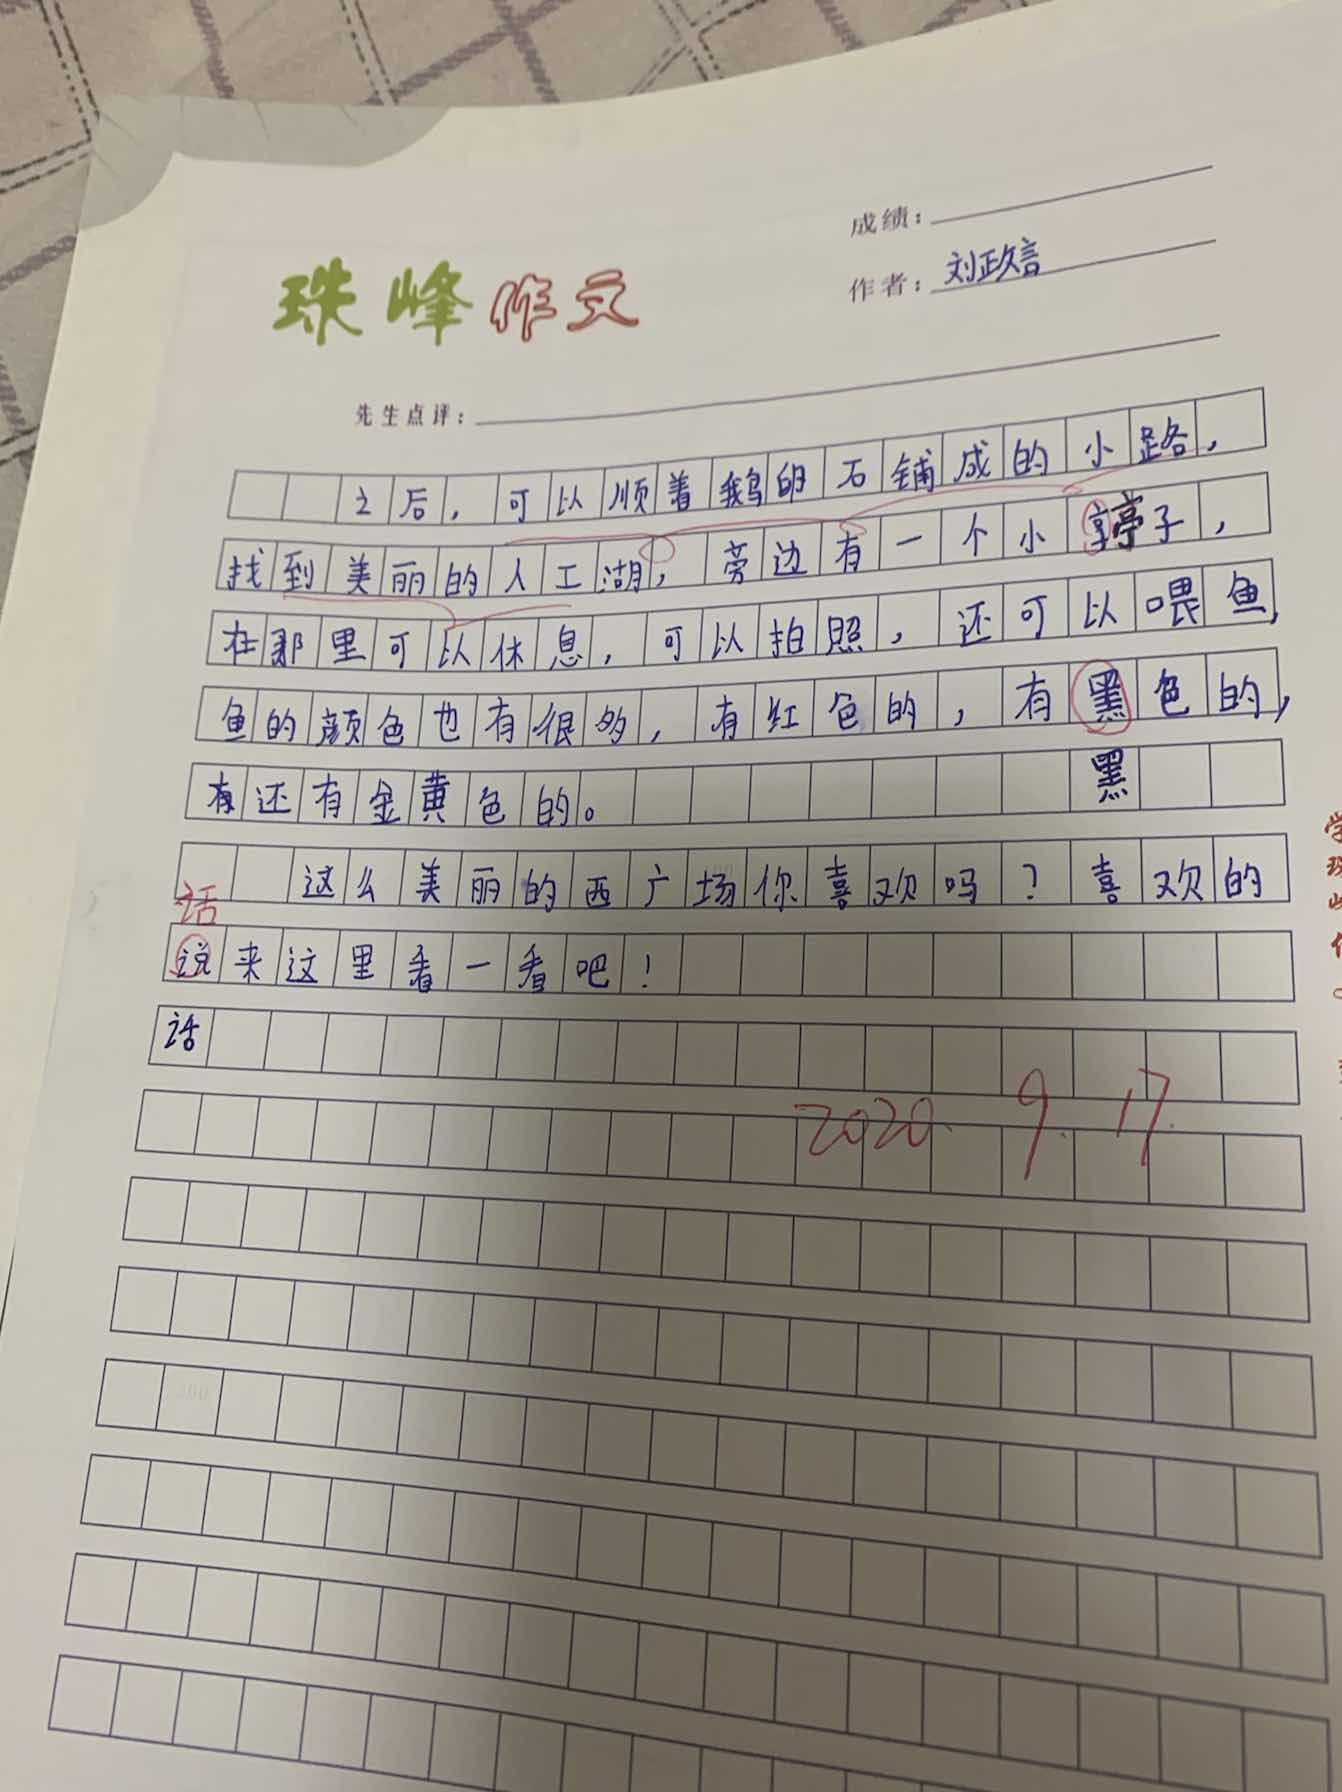 成绩：
作者：刘政言
珠峰作文
先生点评：
之后，可以顺着鹅卵石铺成的小路，
找到美丽的人工湖，旁边有一个小亭子，
在那里可以休息，可以拍照，还可以喂鱼，
鱼的颜色也有很多，有红色的，有黑色的，
有还有金黄色的。
黑
这么美丽的西广场你喜欢吗？喜欢的
话
说来这里看一看吧！
话
2020. 9. 17.
300